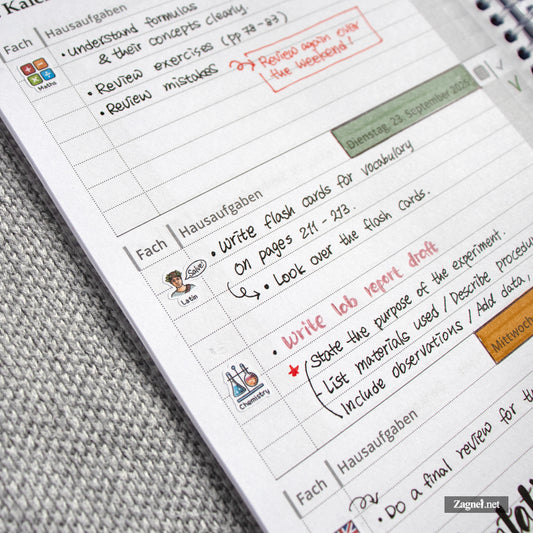 Fach
Hausaufgaben
• Understand formulas
& their concepts clearly.
• Review exercises (pp 78-83)
• Review mistakes
Review again over
the weekend!
Maths
Dienstag, 23. September 2025
Fach
Hausaufgaben
• Write flash cards for vocabulary
on pages 211 - 213.
• Look over the flash cards.
Salve!
Latin
• Write lab report draft
State the purpose of the experiment.
- List materials used / Describe procedu
Include observations / Add data,
Chemistry
Mittwoch
Fach
Hausaufgaben
• Do a final review for th
Zagnel.net